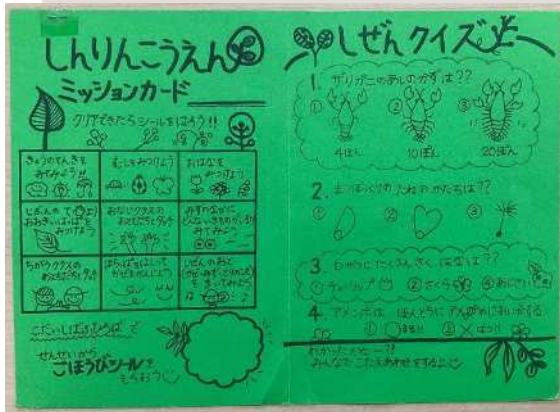 しんりんこうえん
ミッションカード
クリアできたらシールをはろう!!
きょうのてんきを
みてみよう!!
むしをみつけよう
おはなを
みつけよう
じぶんのてより
おおきいはっぱを
みつけよう
おなじクラスの
おともだちとタッチ
みずのなかに
どんないきものがいるか
みてみよう
ちがうクラスの
おともだちとタッチ
はらっぱをはしって
かぜをかんじよう
しぜんのおと
をきいてみよう
こだいしばふひろば で
せんせいから
ごほうびシールを
もらおう
しぜんクイズ
1. ザリガニのあしのかずは??
① ② ③
4ほん 10ぽん 20ぽん
2. まつぼっくりの たねの かたちは??
① ② ③
3. 6がつにたくさんさく はなは??
① チューリップ ② さくら ③ あじさい
4. アメンボは ほんとうに アメのにおいがする
① まる!! ② × ばつ!!
わかったかなー?!
みんなで こたえあわせをするよ